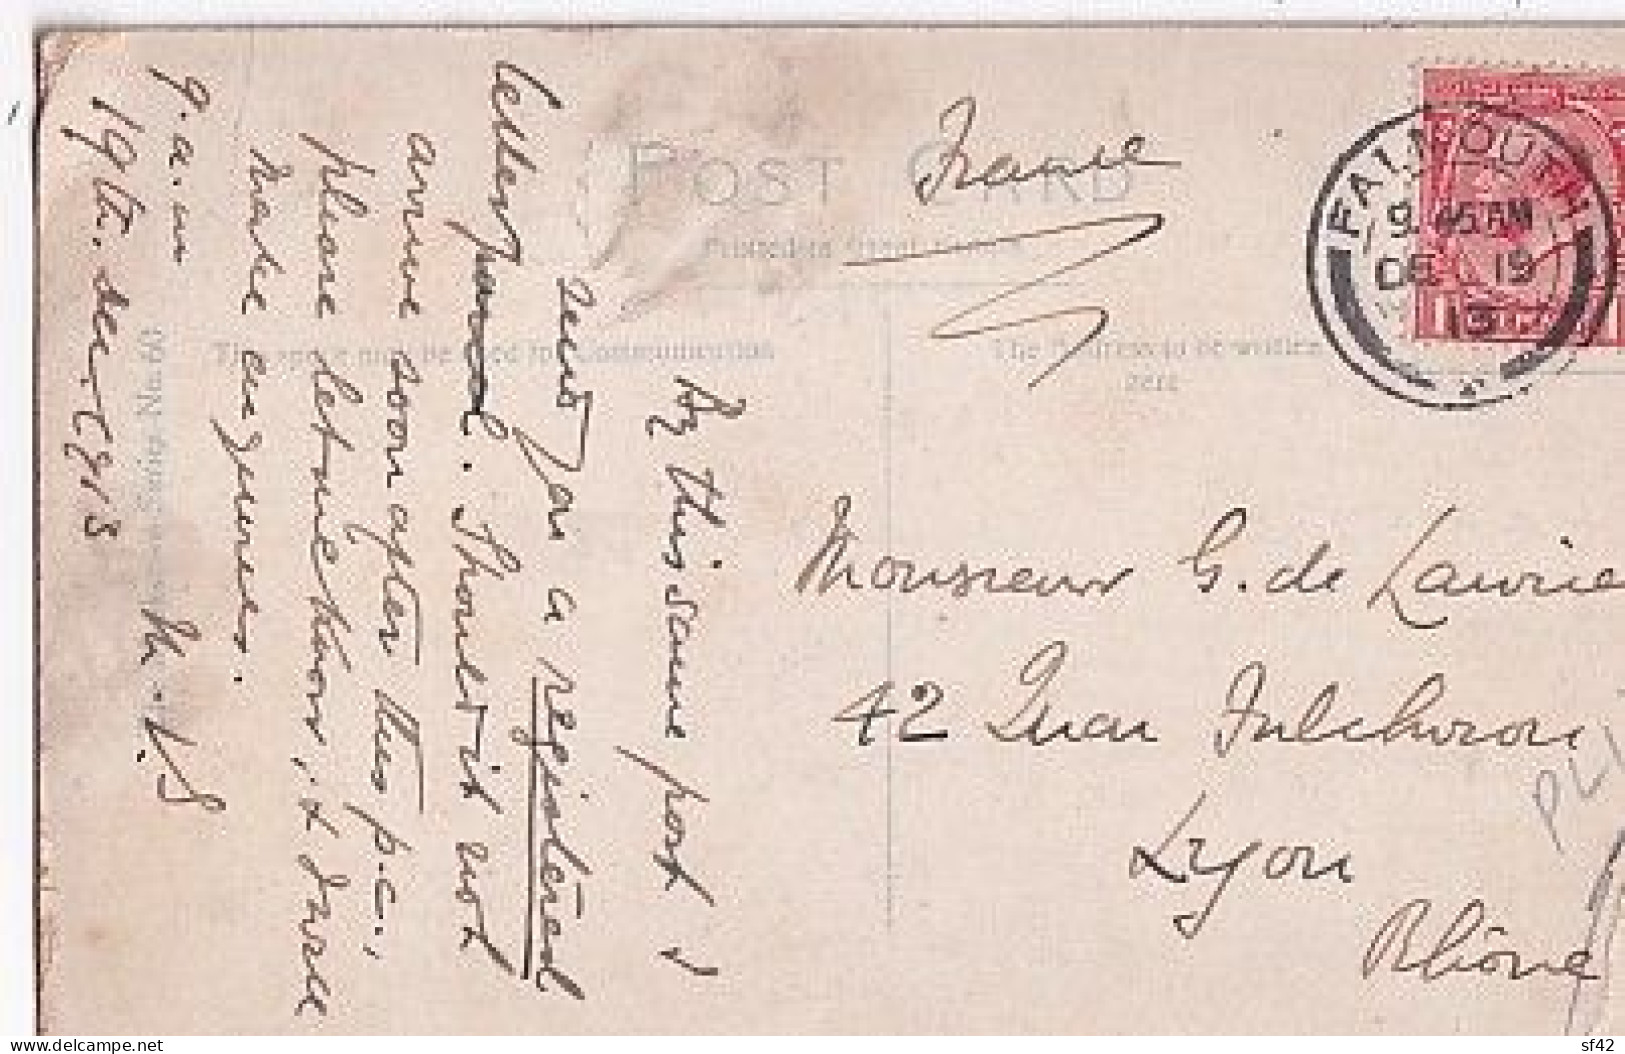 POST CARD
France
FALMOUTH
9.45 AM
DE 19
13
This space may be used for Communication
The Address to be written
here
By this same post I
send you a registered
letter parcel. Should it not
arrive soon after this p.c.,
please let me know, & I will
make enquiries.
9 a.m
19th. Dec. 1913
Monsieur G. de Lavrie
42 Quai Fulchiron
Lyon
Rhône
sf42